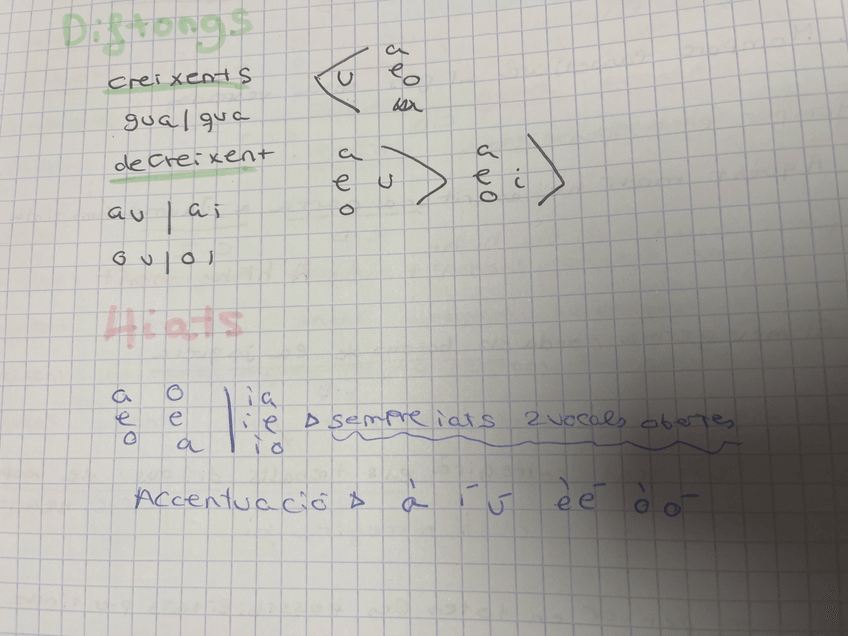 Diftongs
creixents < u a
e o
gua/gua
decreixent a a
e u > e i >
o o
au | ai
ou | oi
Hiats
a o | ia
e e | ie ▷ sempre iats 2 vocals obertes
o a | io
Accentuació ▷ à í ú è é ò ó